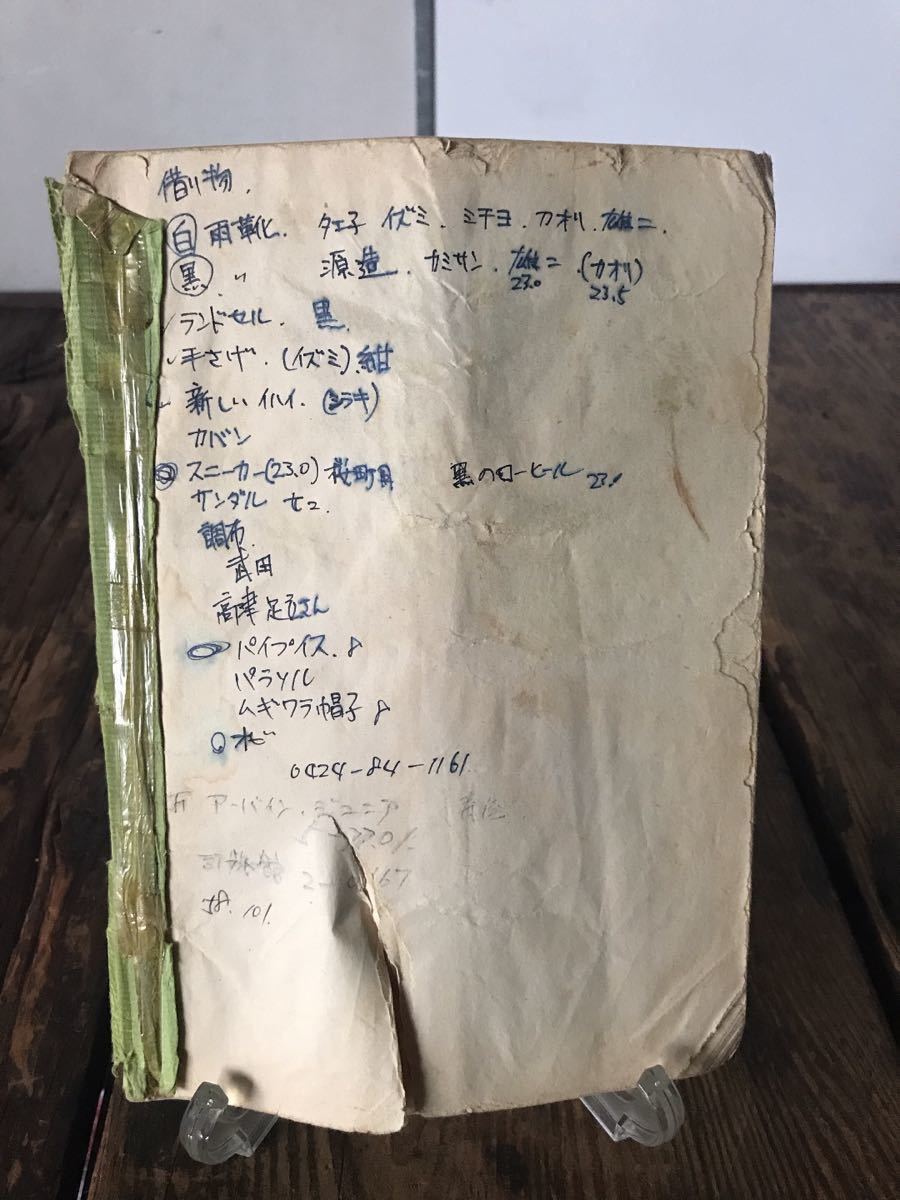 借り物.
白 雨靴. タエ子 イズミ. ミチヨ. カオリ. 雄二.
黒 〃 源造. カミサン. 雄二 (カオリ)
23.0 23.5
ランドセル. 黒.
手さげ. (イズミ). 紺
新しいイハイ. (シラキ)
カバン
スニーカー(23.0) 黒のローヒール 23.
サンダル 女2
調布.
武田
高津 足立さん
パイプイス. 8
パラソル
ムギワラ帽子 8
オビ
0424-84-1161
アーバイン.ジュニア
101